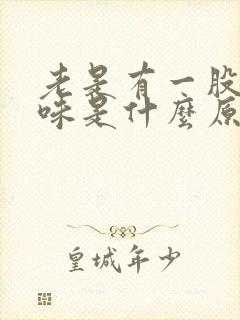 老是有一股
味是什麼原
皇城年少